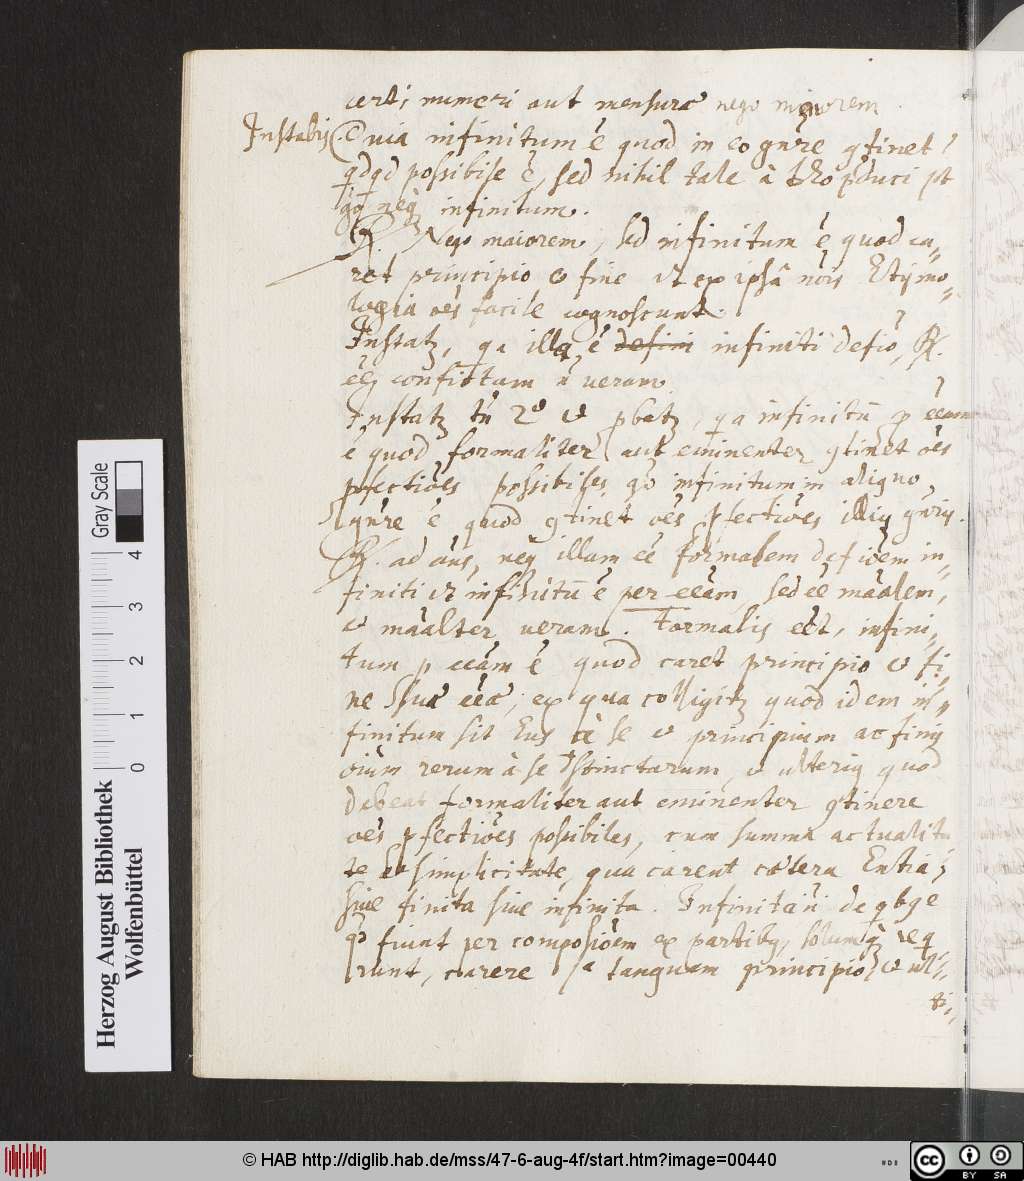 certi numeri aut mensuræ nego minorem
Instabis Quia infinitum ē quod in eo gn̄re gtinet
qdqd possibile ē, sed nihil tale à pduci pt
neq infinitum.
R. Nego maiorem, sed infinitum ē quod ca„
ret principio & fine ut ex ipsâ nōis Etÿmo„
logia oēs facile cognoscunt.
Instatz, qa illa ē defini infiniti defio, R.
eē confictam n̄ veram
Instatz tn̄ 2° & pbatz, qa infinitū p eēam
ē quod formaliter aut eminenter gtinet oēs
pfectiōes possibiles, infinitum in aliquo„
gn̄re ē quod gtinet oēs pfectiōes illiq gn̄ris.
R. ad ān̄s, neq illam eē formalem defiōem in„
finiti ut infinitū ē per eēam, sed eē māalem,
& māalter veram. Formalis eēt, infini„
tum p eēam ē quod caret principio & fi„
ne suæ eēæ, ex qua colligitz quod idem in„
finitum sit Ens à se & principium ac finis
oium rerum à se dstinctarum, & ulteriq quod
debeat formaliter aut eminenter gtinere
oēs pfectiōes possibiles, cum summa actualita„
te et simplicitate, qua carent cætera Entia,
siue finita siue infinita. Infinita n̄ de qbqe
fiunt per composiōem ex partibq, solumq req
runt, carere tanquam principio, & ul„
ti„
Herzog August Bibliothek
Wolfenbüttel
Gray Scale
0 1 2 3 4
© HAB http://diglib.hab.de/mss/47-6-aug-4f/start.htm?image=00440
cc BY SA